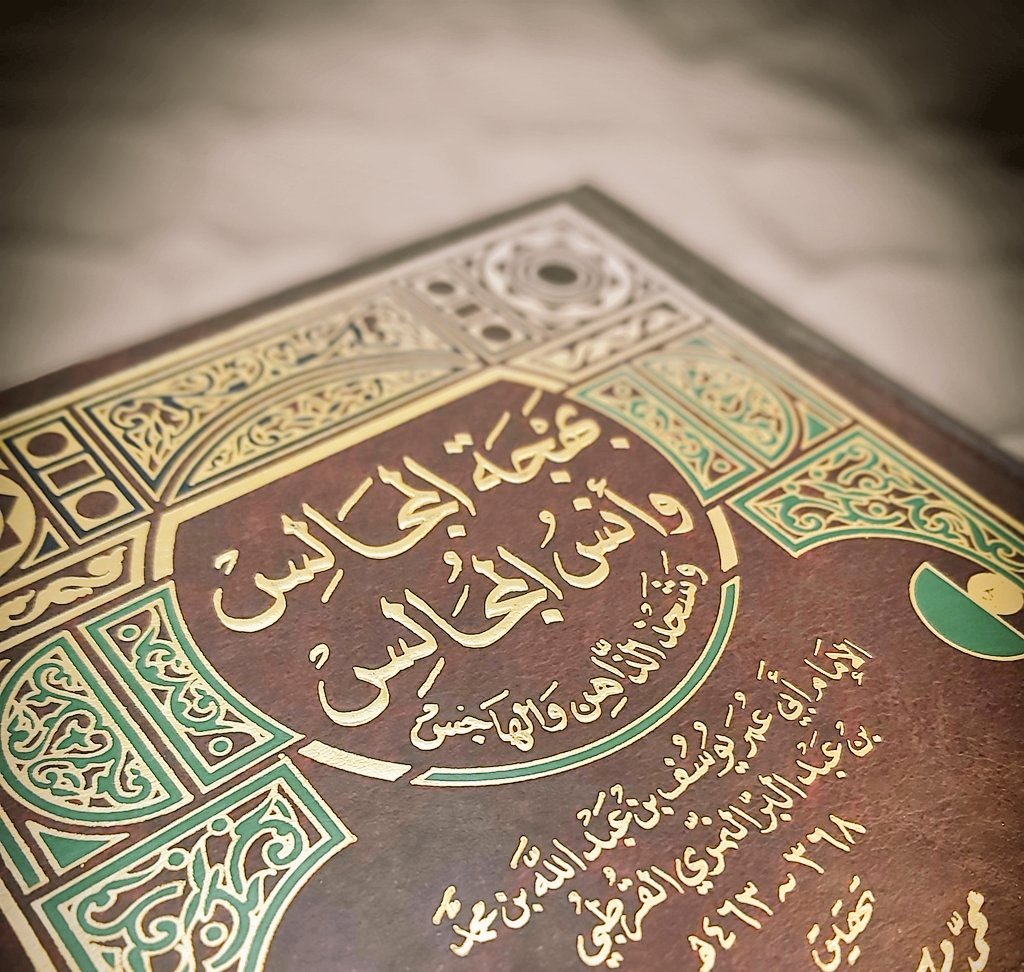 بَهْجَة المجَالِسْ
وأنسُ المُجَالِسْ
وَشَحْذ الذَّاهِن وَالهَاجِسْ
الإمَام أبي عُمَر يُوسُف بن عَبْد اللّه بن محمَّد
بن عَبْد البَرّ النمَري القرطُبي
٣٦٨ ~ ٤٦٣ هـ
تحقيق
محمّد